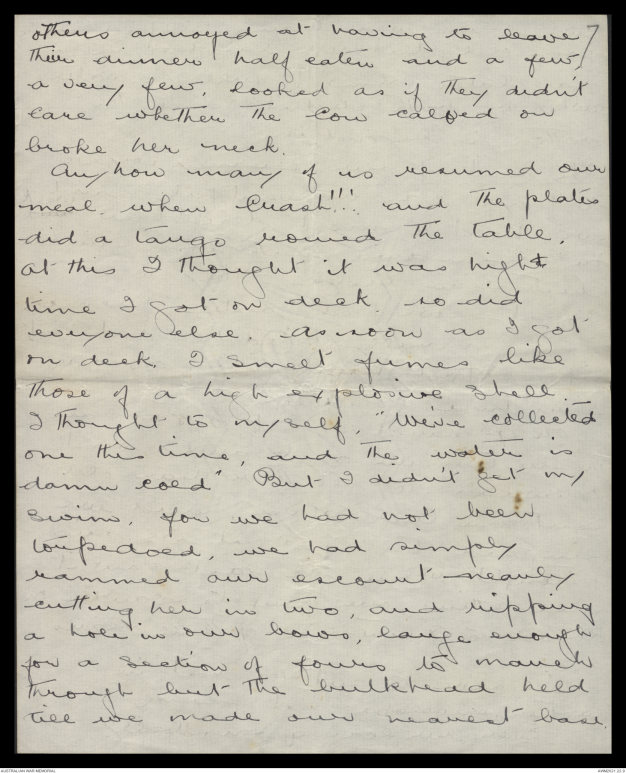 7
others annoyed at having to leave
their dinner half eaten and a few,
a very few, looked as if they didn't
care whether the cow calved or
broke her neck.
Anyhow many of us resumed our
meal, when Crash!!! and the plates
did a tango round the table,
at this I thought it was high
time I got on deck, so did
everyone else. As soon as I got
on deck, I smelt fumes like
those of a high explosive shell.
I thought to myself, "We've collected
one this time, and the water is
damn cold" But I didn't get my
swim, for we had not been
torpedoed, we had simply
rammed our escourt nearly
cutting her in two, and ripping
a hole in our bows, large enough
for a section of fours to march
through but the bulkhead held
till we made our nearest base.
AUSTRALIAN WAR MEMORIAL